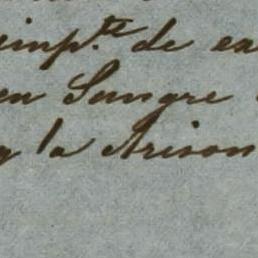 imp.te de ex
en Sangre
y la Arison